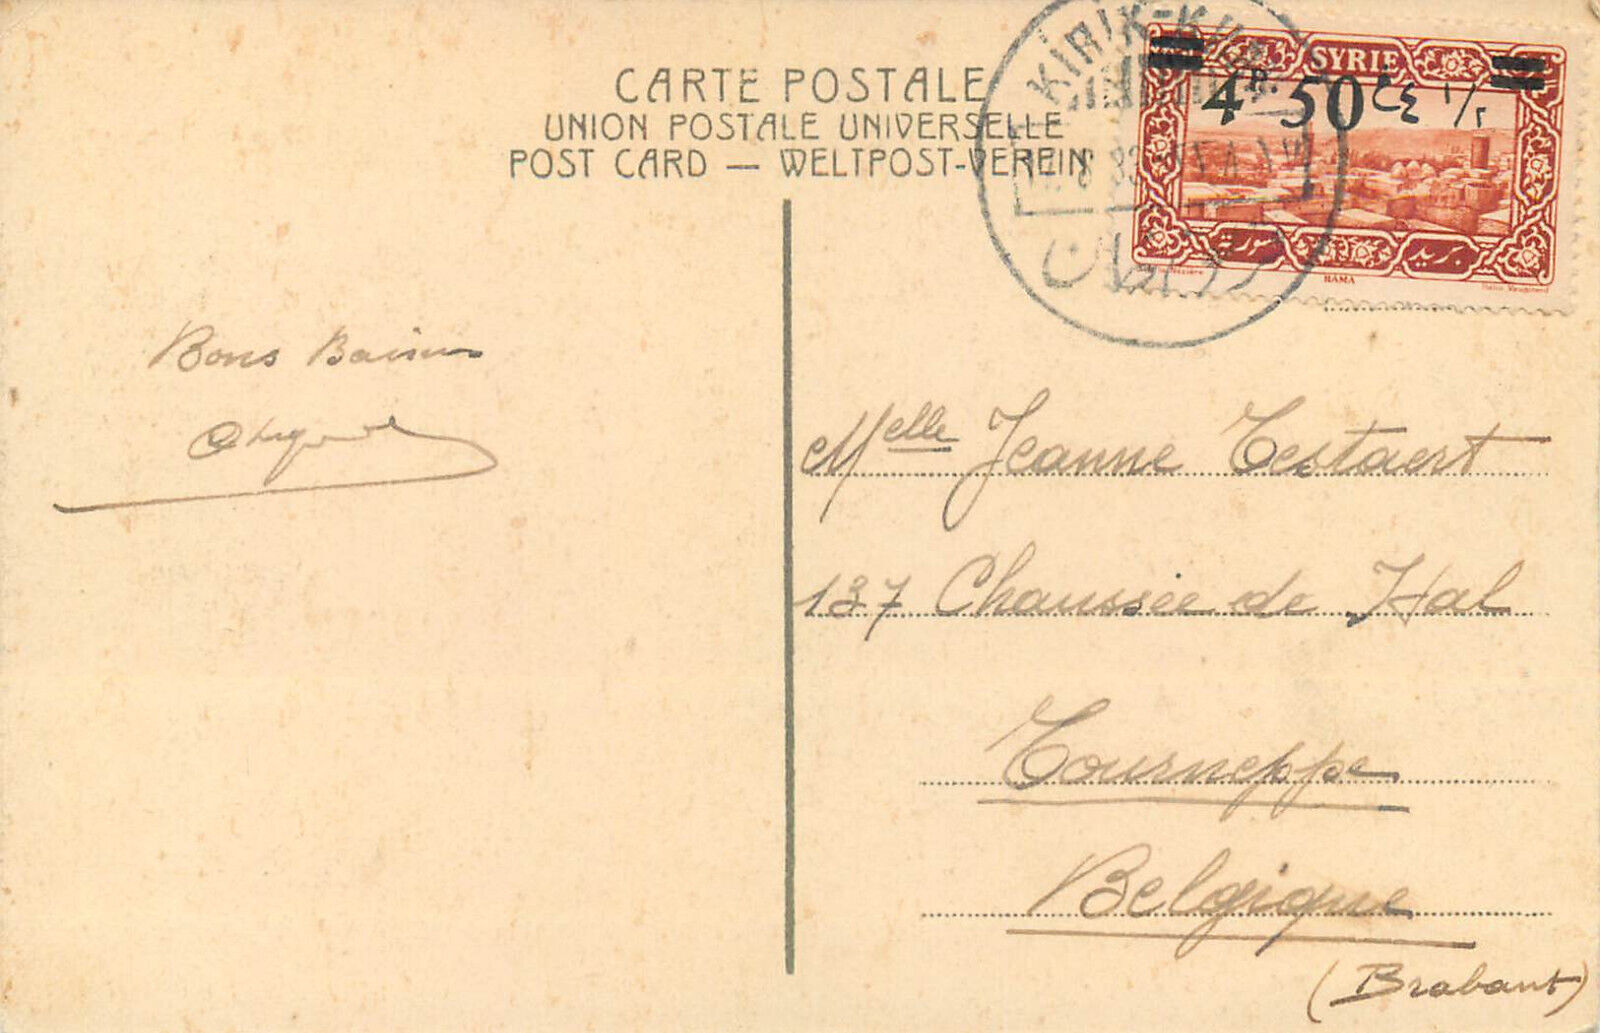 CARTE POSTALE
UNION POSTALE UNIVERSELLE
POST CARD — WELTPOST-VEREIN
KIRIK-
SYRIE
4 P. 50 ٤ ١/٢
سورية
بريد
HAMA
Bons Baisers
Melle Jeanne Testaert
137 Chaussée de Hal
Tourneppe
Belgique
(Brabant)